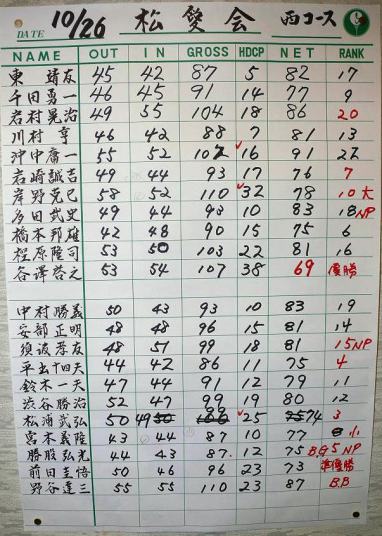 DATE 10/26 松雙会 西コース
NAME OUT IN GROSS HDCP NET RANK
東 靖友 45 42 87 5 82 17
千田勇一 46 45 91 14 77 9
岩村晃治 49 55 104 18 86 20
川村 亨 46 42 88 7 81 13
沖中 一 55 52 107 16 91 22
岩崎誠吉 49 44 93 17 76 7
岸野克巳 58 52 110 32 78 10 大
多田武史 49 44 93 10 83 18 NP
橋本邦雄 42 48 90 15 75 6
桎原隆司 53 50 103 22 81 16
谷澤 之 53 54 107 38 69 優勝
中村勝義 50 43 93 10 83 19
安部正明 48 48 96 15 81 14
須 孝友 48 51 99 18 81 15 NP
平出十四夫 44 42 86 11 75 4
鈴木一夫 47 44 91 12 79 11
渋谷勝治 52 47 99 19 80 12
松浦武弘 50 49 99 25 74 3
宮本義隆 43 44 87 10 77 8 小
勝股弘光 44 43 87 12 75 B.G 5 NP
前田圭悟 50 46 96 23 73 準優勝
野谷達三 55 55 110 23 87 B.B